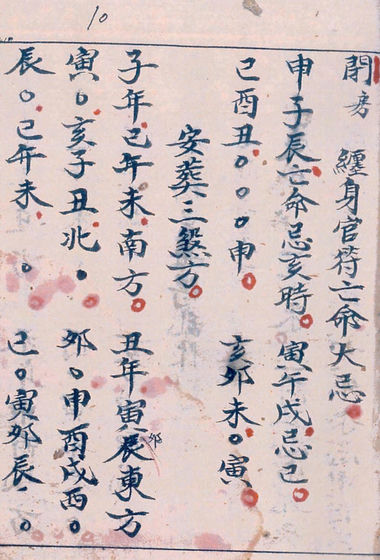 10
開房 纏身官符亡命大忌
申子辰亡命忌亥時。寅午戌忌巳。
巳酉丑。。。申。 亥卯未。寅。
安葬三煞方。
子年巳午未南方。丑年寅卯辰東方
寅。亥子丑北。 卯。申酉戌西。
辰。巳午未。。 巳。寅卯辰、。